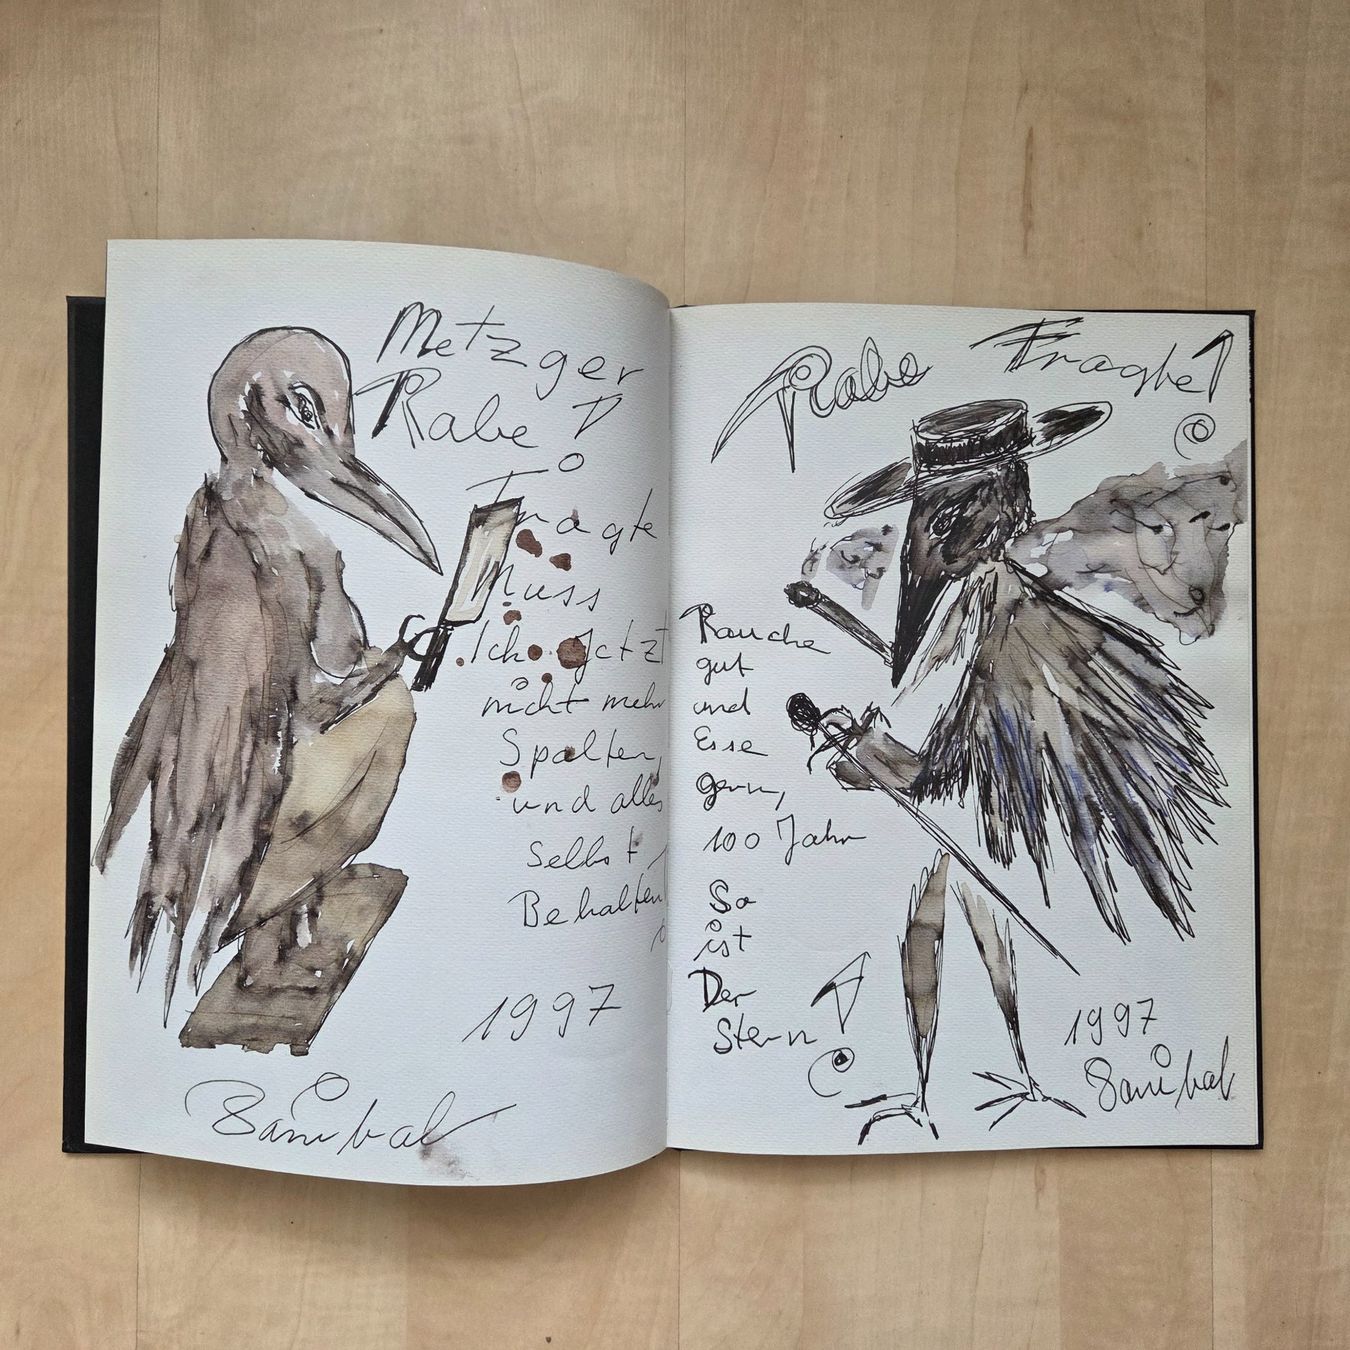 Metzger
Rabe !
Fragte
Muss
Ich Jetzt
nicht mehr
Spalten,
und alles
Selbst
Behalten
!
1997
Rabe Fragte!
Rauche
gut
und
Esse
gern,
100 Jahr
So
ist
Der
Stern !
1997